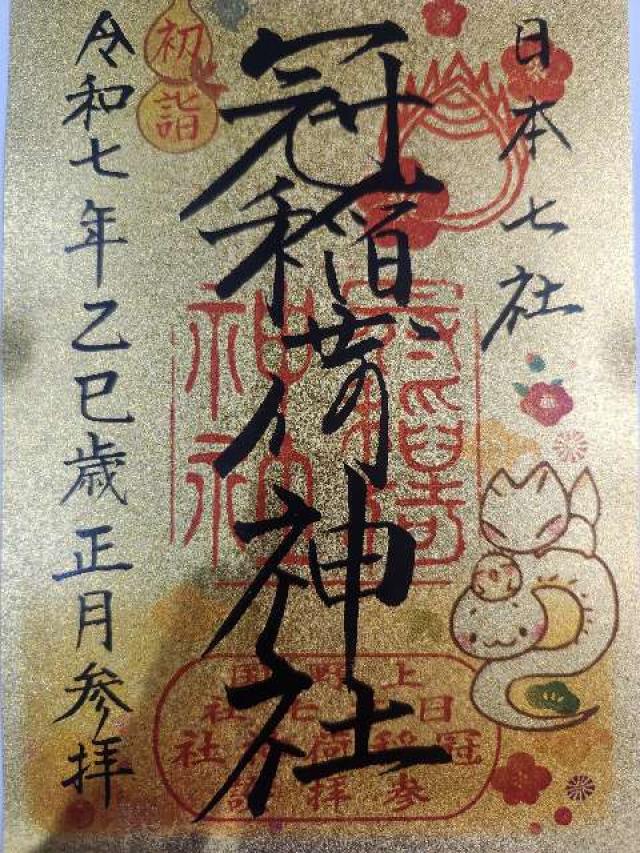 日本七社
冠稲荷神社
令和七年乙巳歳正月参拝
初詣
上野国
日本七社
冠稲荷神社
参拝